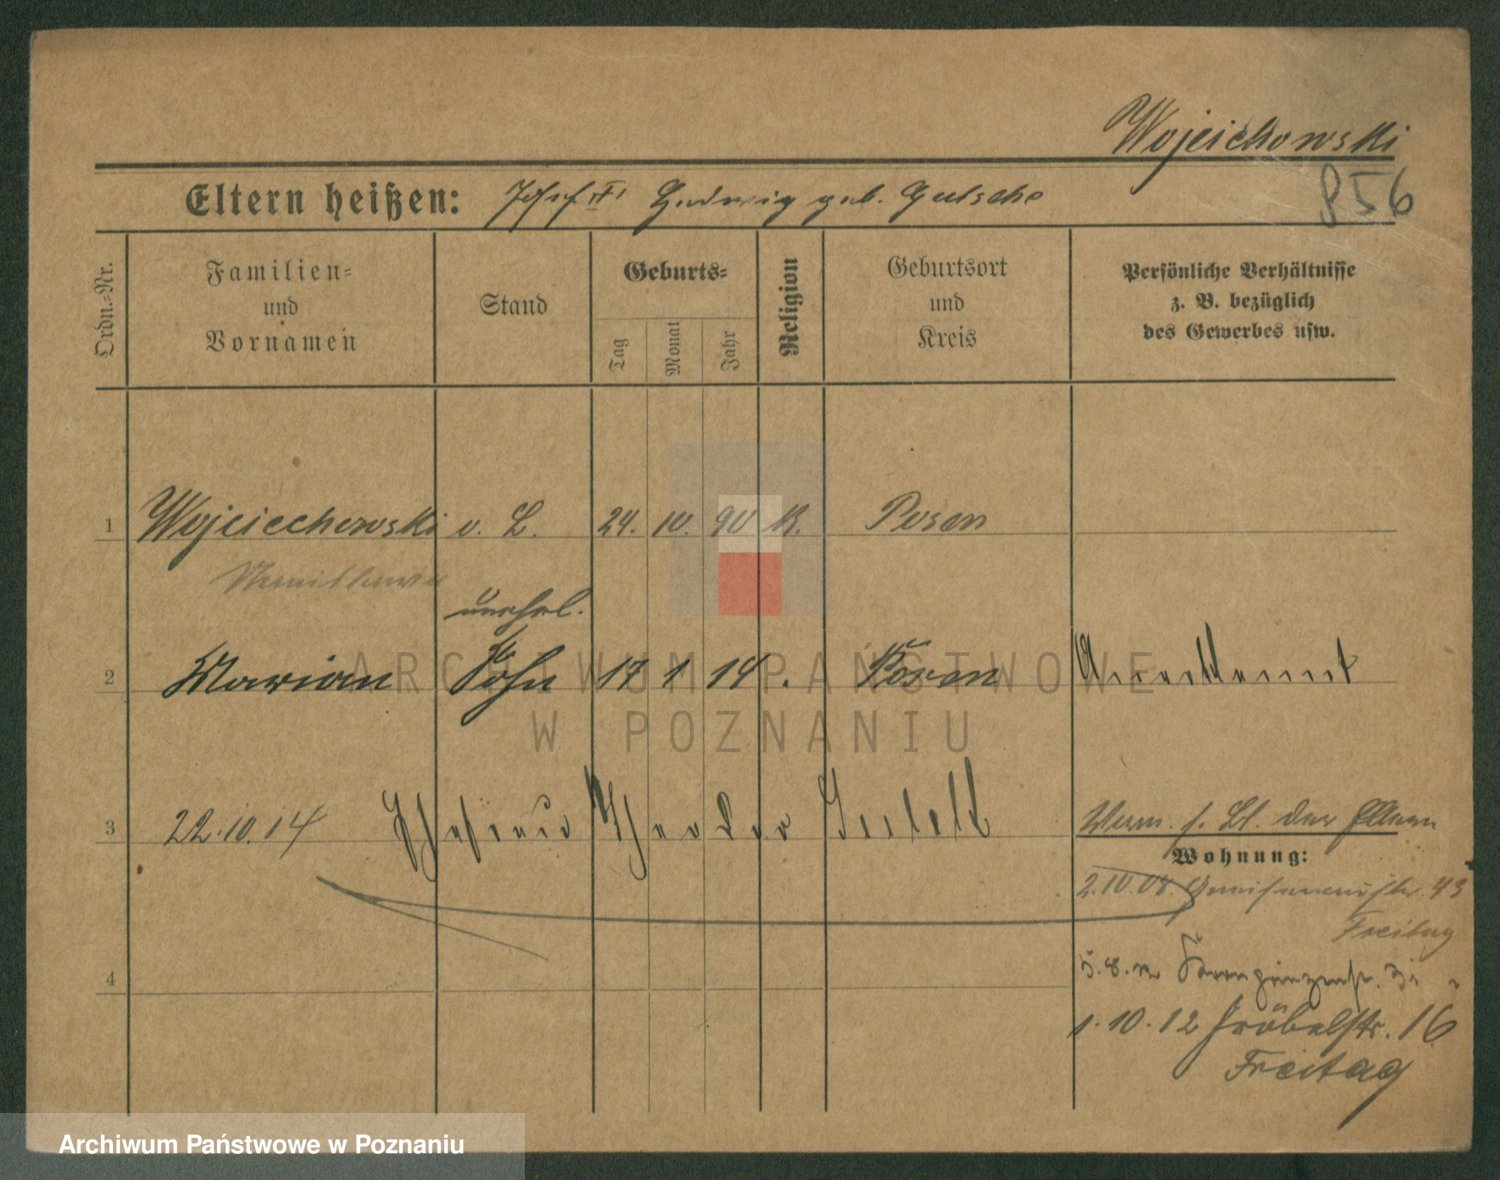 Wojciechowski
856
Eltern heißen: Josef II Hedwig geb. Gutsche
Ordn.=Nr.
Familien=
und
Vornamen
Stand
Geburts=
Tag
Monat
Jahr
Religion
Geburtsort
und
Kreis
Persönliche Verhältnisse
z. B. bezüglich
des Gewerbes usw.
1 Wojciechowski v. L. 24. 10. 90 K. Posen
unehel.
2 Marian Sohn 17 1 14 . Posen
3 22.10.14 Theodor
der
Wohnung:
2.10.08. Gneisenaustr. 43
Freitag
5.8.
1.10.12 Fröbelstr. 16
Freitag
4
ARCHIWUM PAŃSTWOWE
W POZNANIU
Archiwum Państwowe w Poznaniu